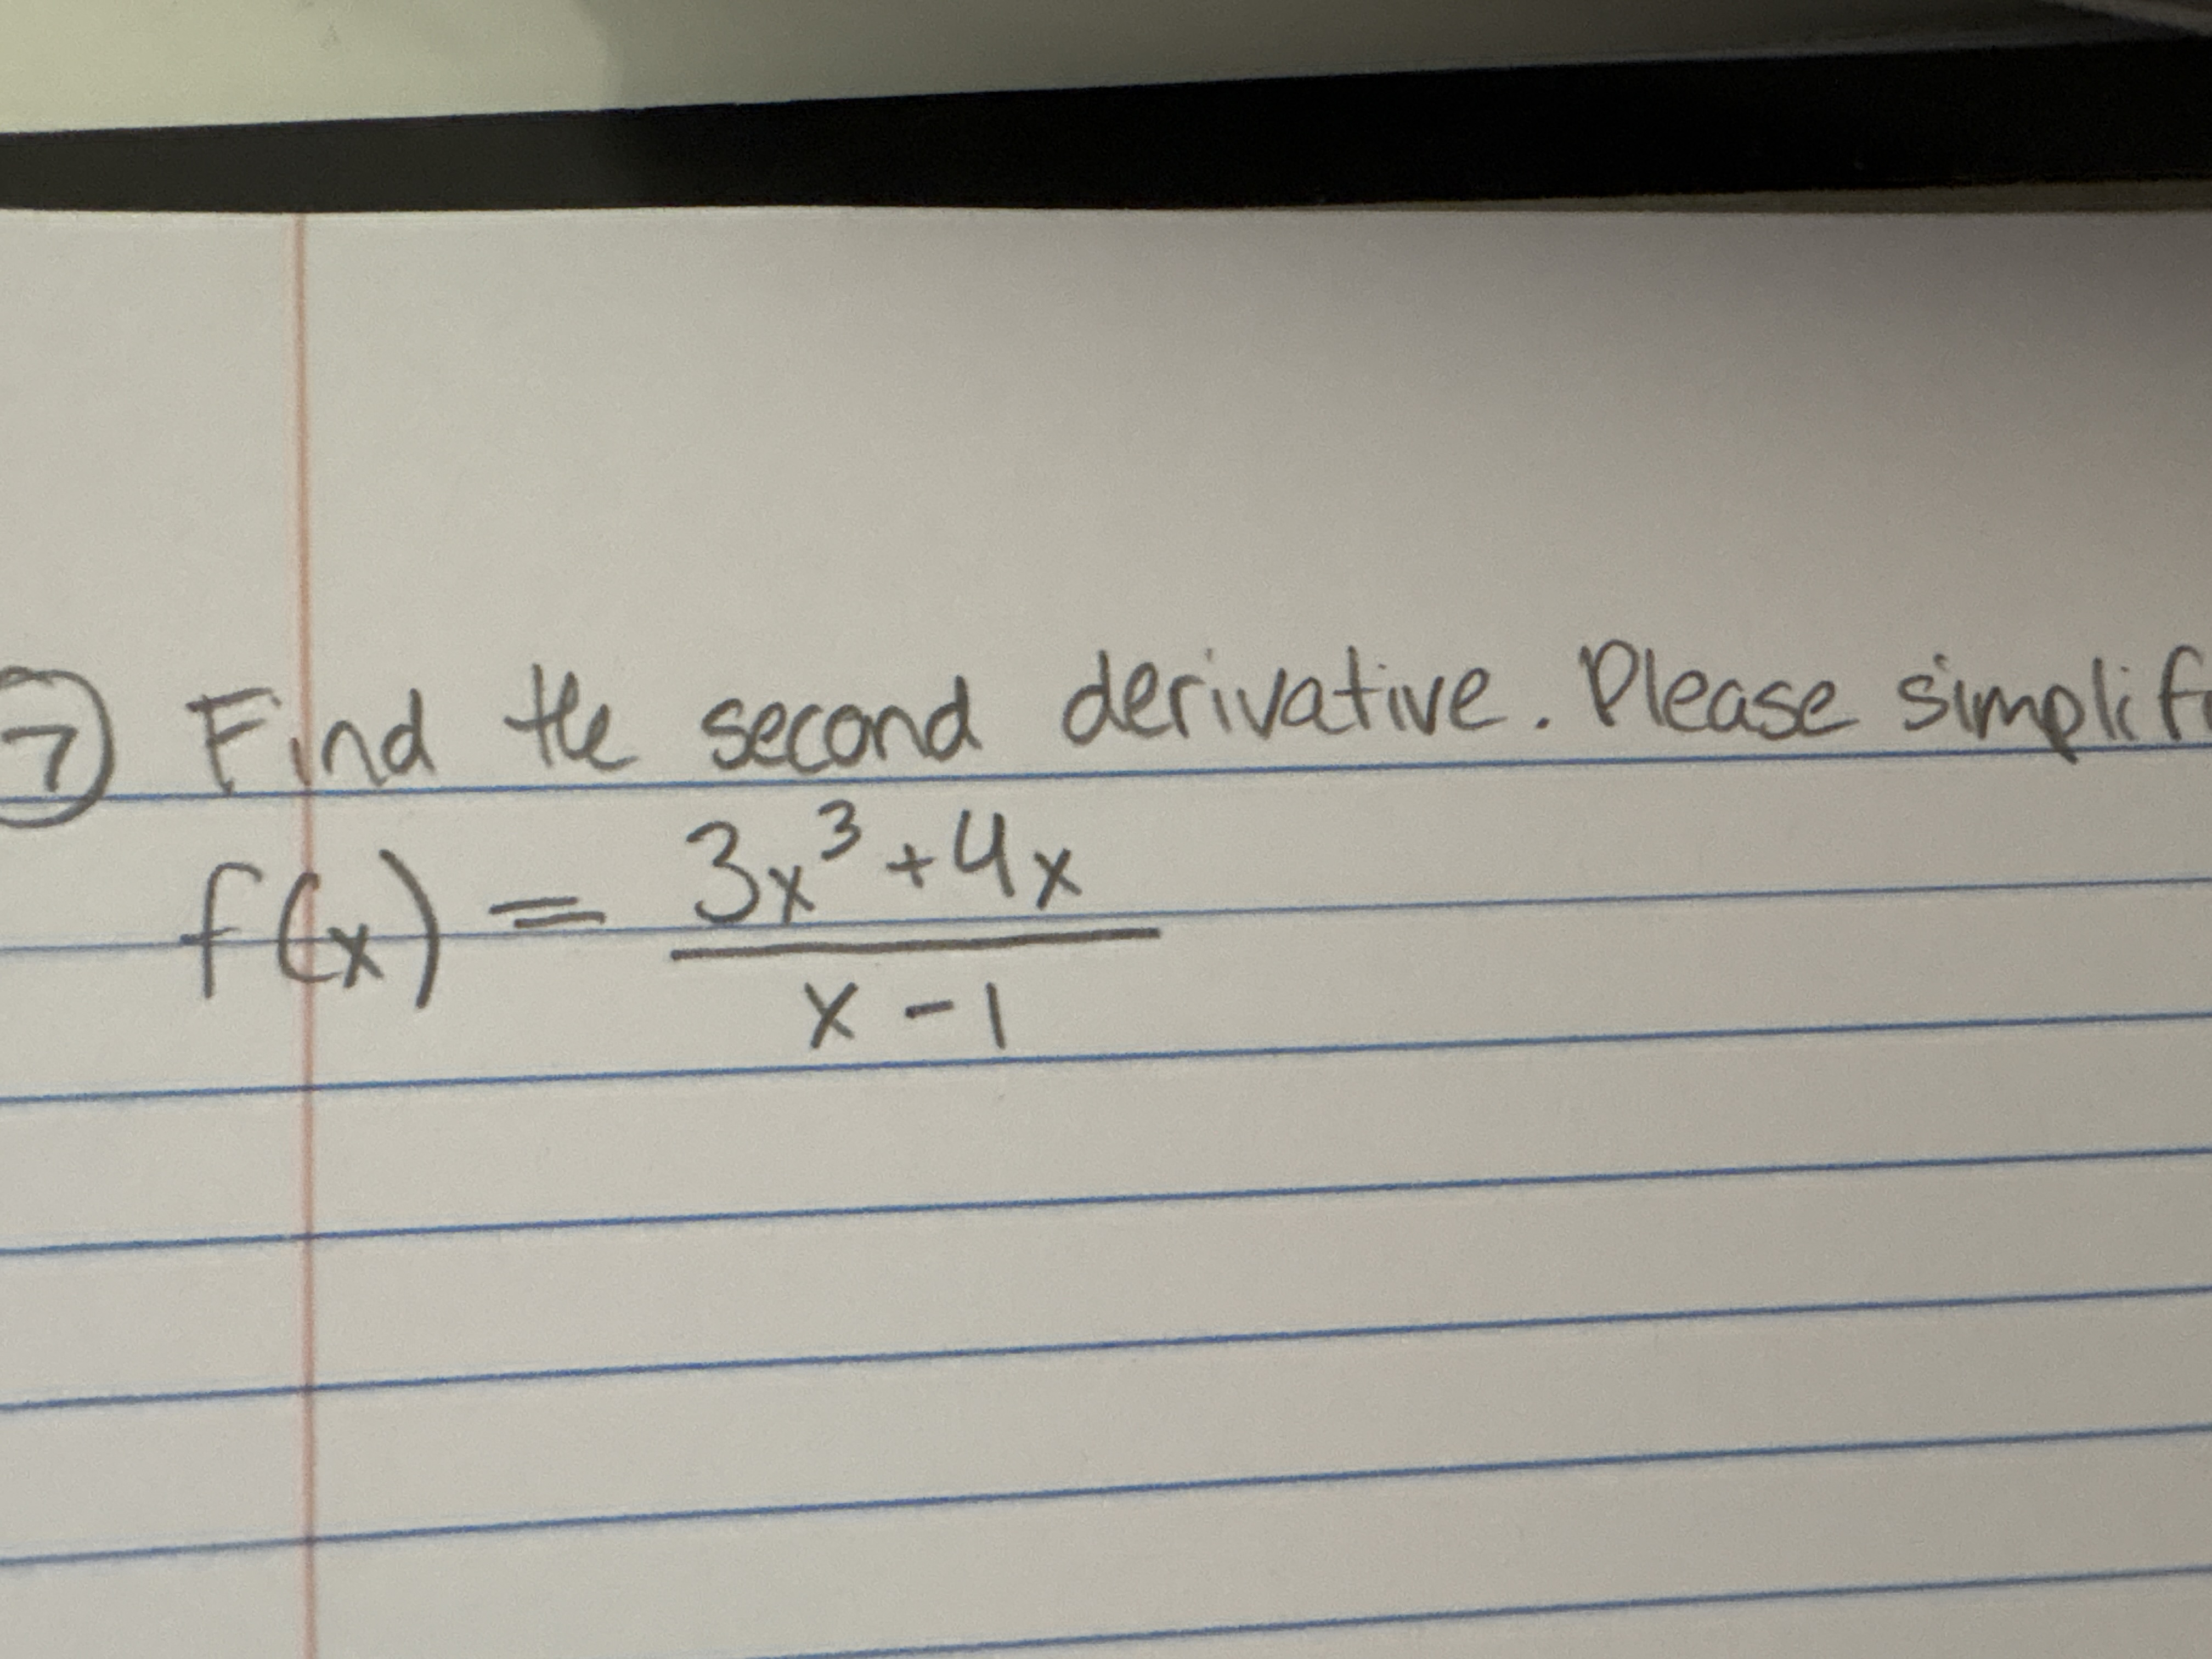 ⑦ Find the second derivative. Please simplif
f(x) = 3x³+4x
x - 1